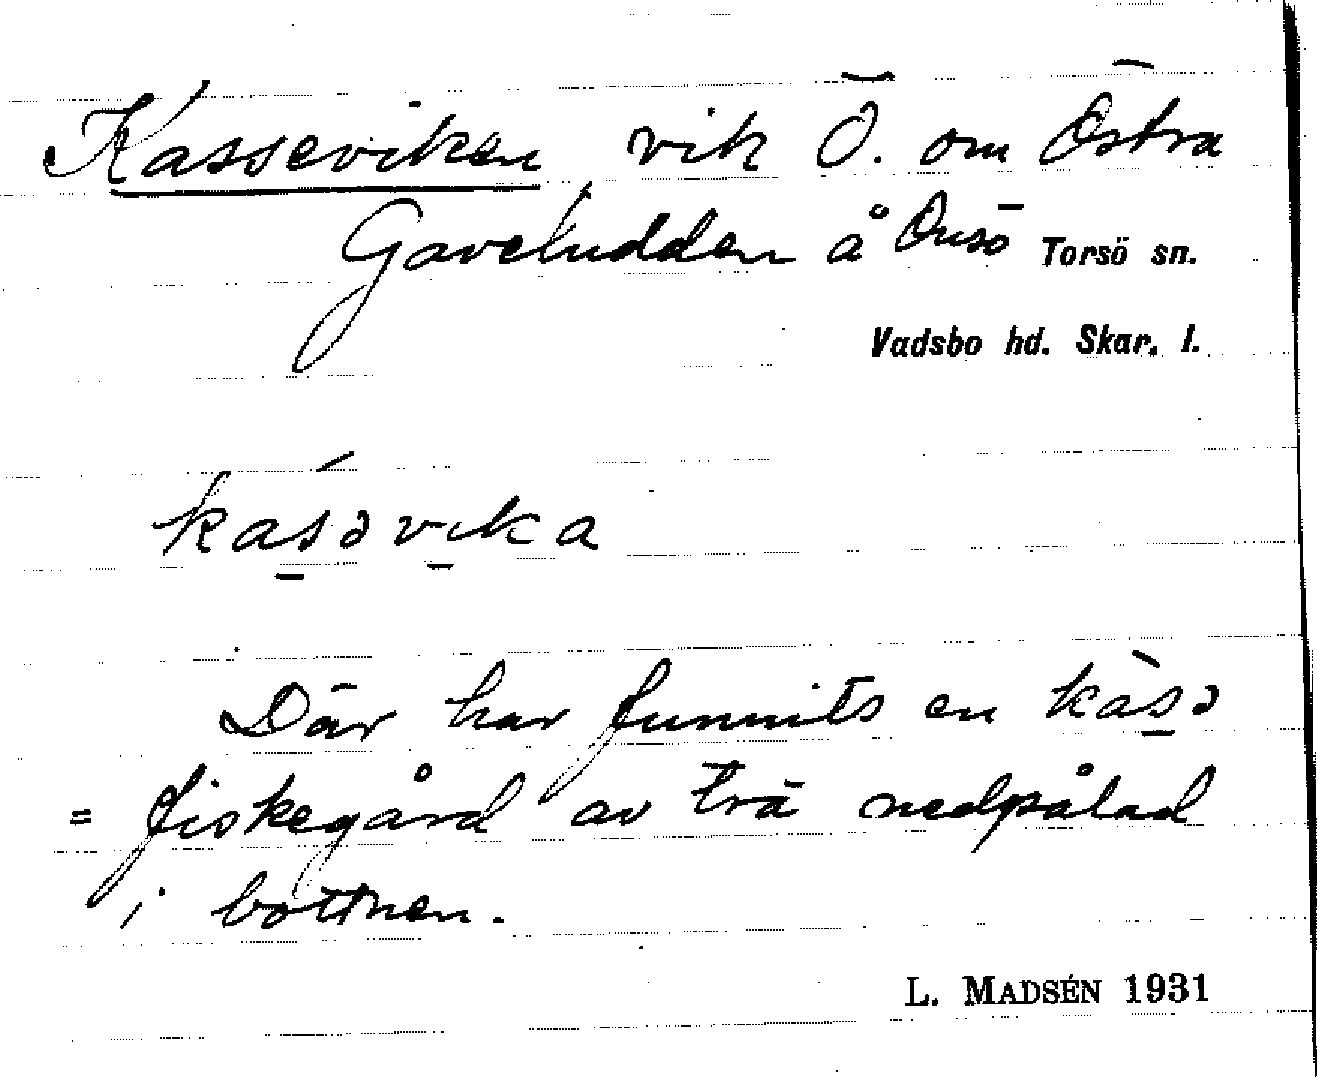 Kasseviken vik Ö. om Östra
Gaveludden å Onsö Torsö sn.
Vadsbo hd. Skar. l.
kásəvika
Där har funnits en kàsə
= fiskegård av trä nedpålad
i bottnen.
L. MADSÉN 1931